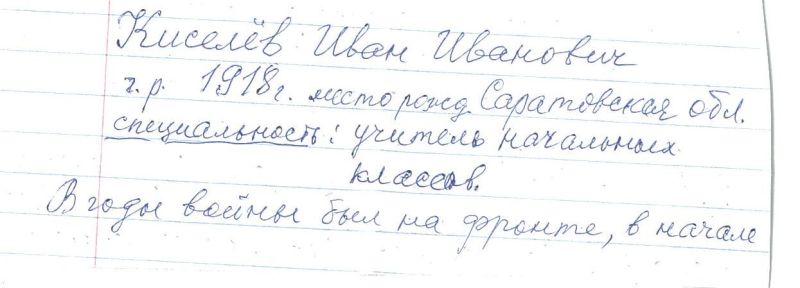 Киселёв Иван Иванович
г.р. 1918г. место рожд. Саратовская обл.
специальность: учитель начальных
классов.
В годы войны был на фронте, в начале